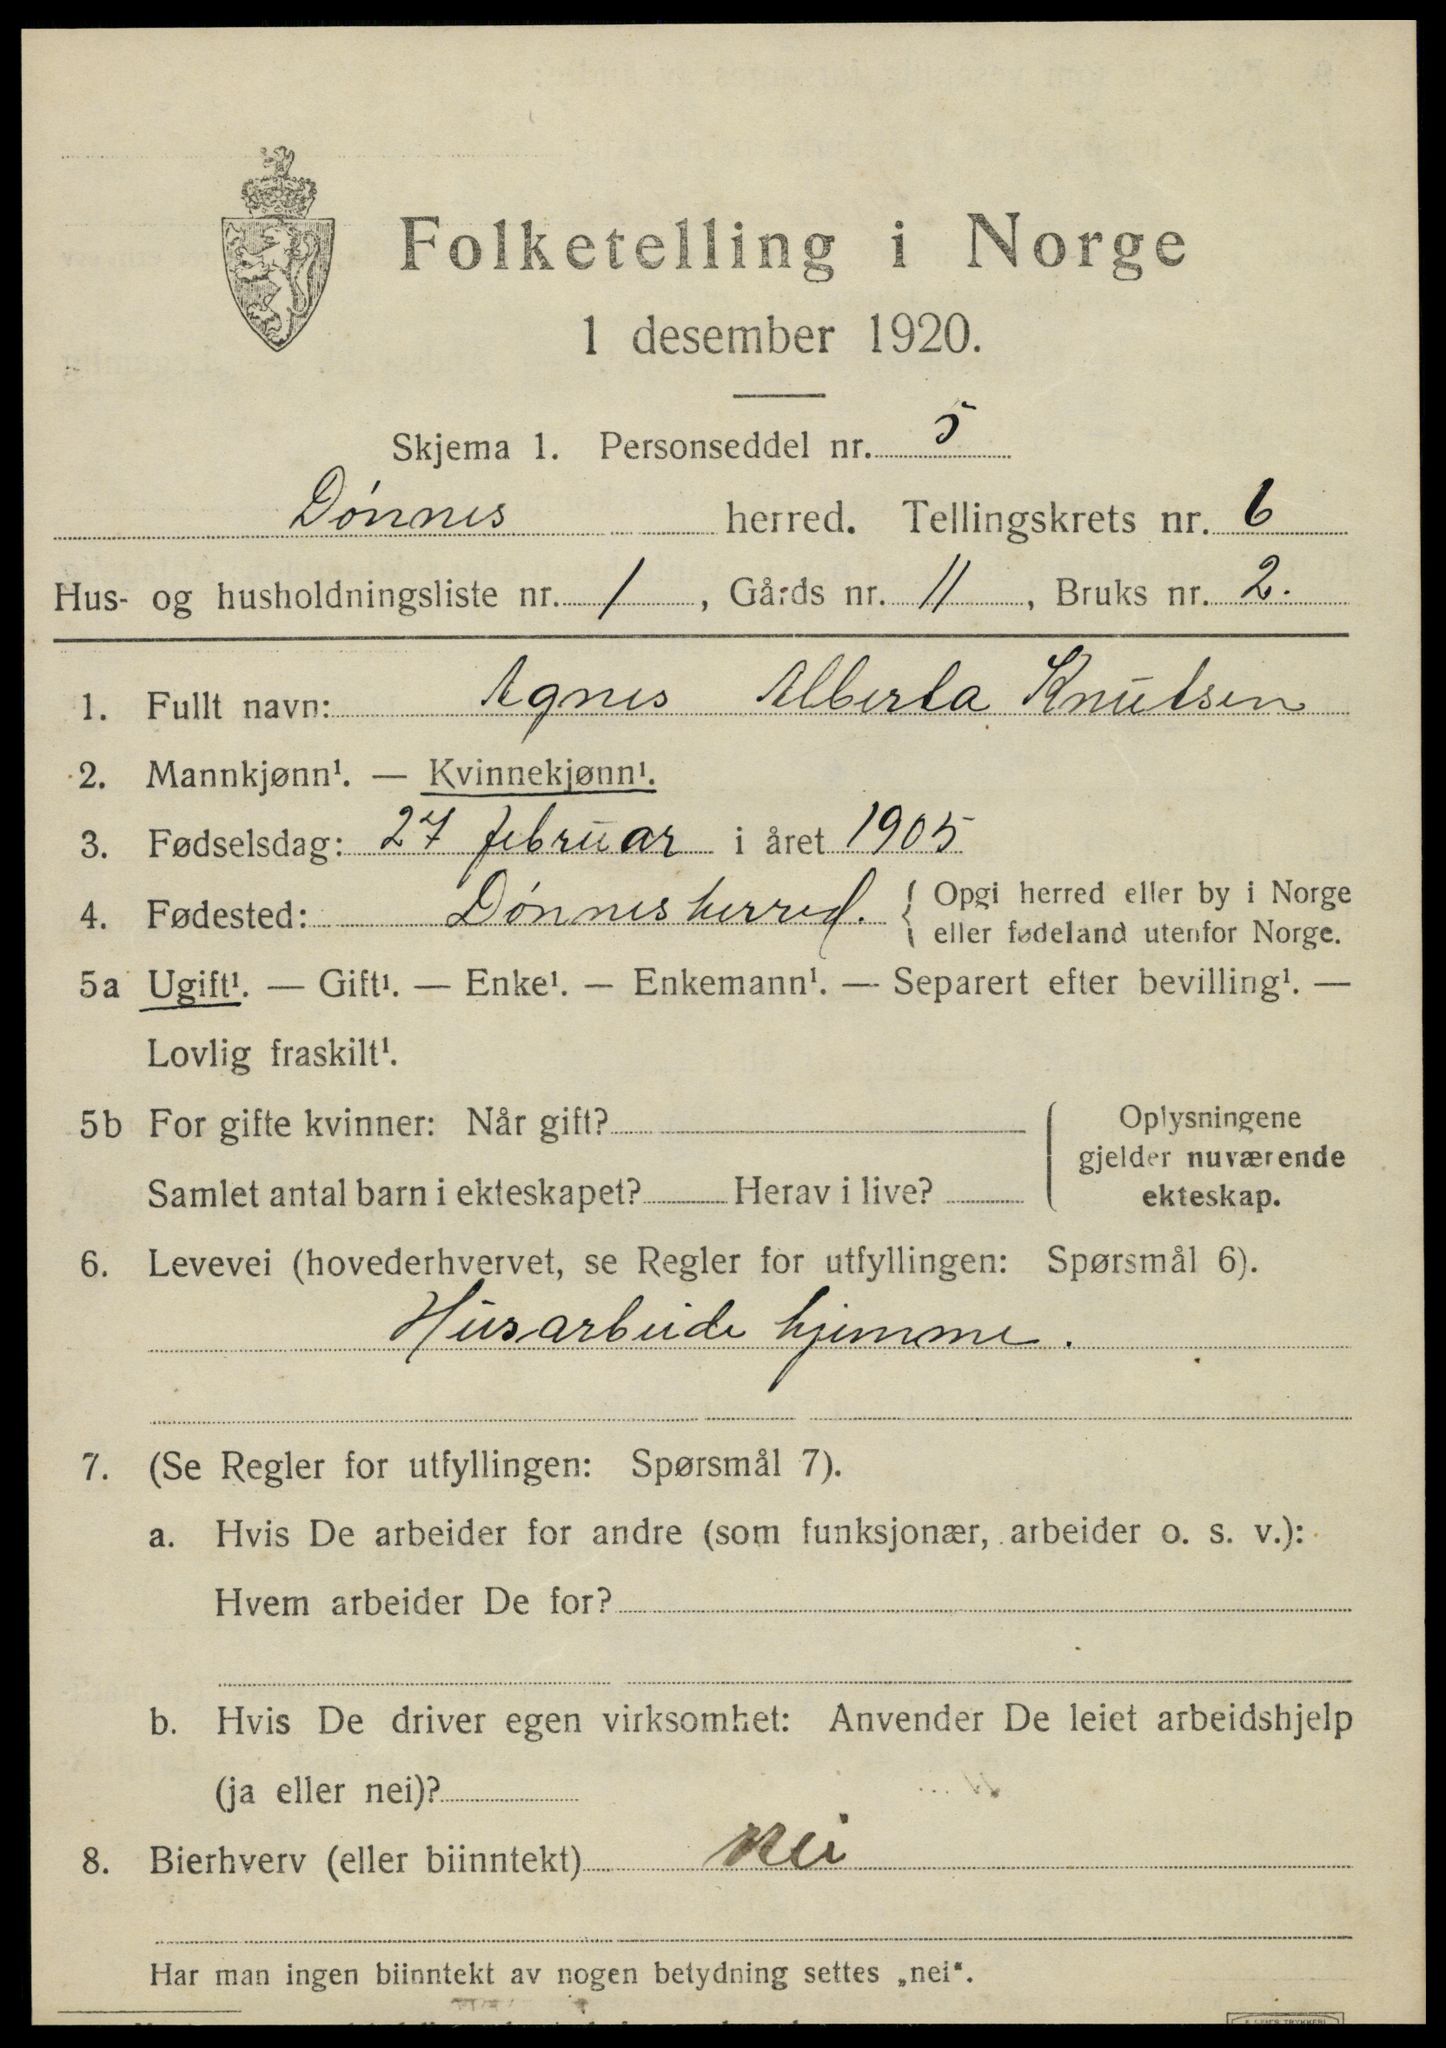 Folketelling i Norge
1 desember 1920.
Skjema 1. Personseddel nr. 5
Dønnes herred. Tellingskrets nr. 6
Hus- og husholdningsliste nr. 1, Gårds nr. 11, Bruks nr. 2.
1. Fullt navn: Agnes Alberta Knutsen
2. Mannkjønn¹. — Kvinnekjønn¹.
3. Fødselsdag: 27 februar i året 1905
4. Fødested: Dønnes herred. { Opgi herred eller by i Norge
eller fødeland utenfor Norge.
5a Ugift¹. — Gift¹. — Enke¹. — Enkemann¹. — Separert efter bevilling¹. —
Lovlig fraskilt¹.
5b For gifte kvinner: Når gift?
Samlet antal barn i ekteskapet? Herav i live?
Oplysningene
gjelder nuværende
ekteskap.
6. Levevei (hovederhvervet, se Regler for utfyllingen: Spørsmål 6).
Husarbeide hjemme.
7. (Se Regler for utfyllingen: Spørsmål 7).
a. Hvis De arbeider for andre (som funksjonær, arbeider o. s. v.):
Hvem arbeider De for?
b. Hvis De driver egen virksomhet: Anvender De leiet arbeidshjelp
(ja eller nei)?
8. Bierhverv (eller biinntekt) nei
Har man ingen biinntekt av nogen betydning settes „nei“.